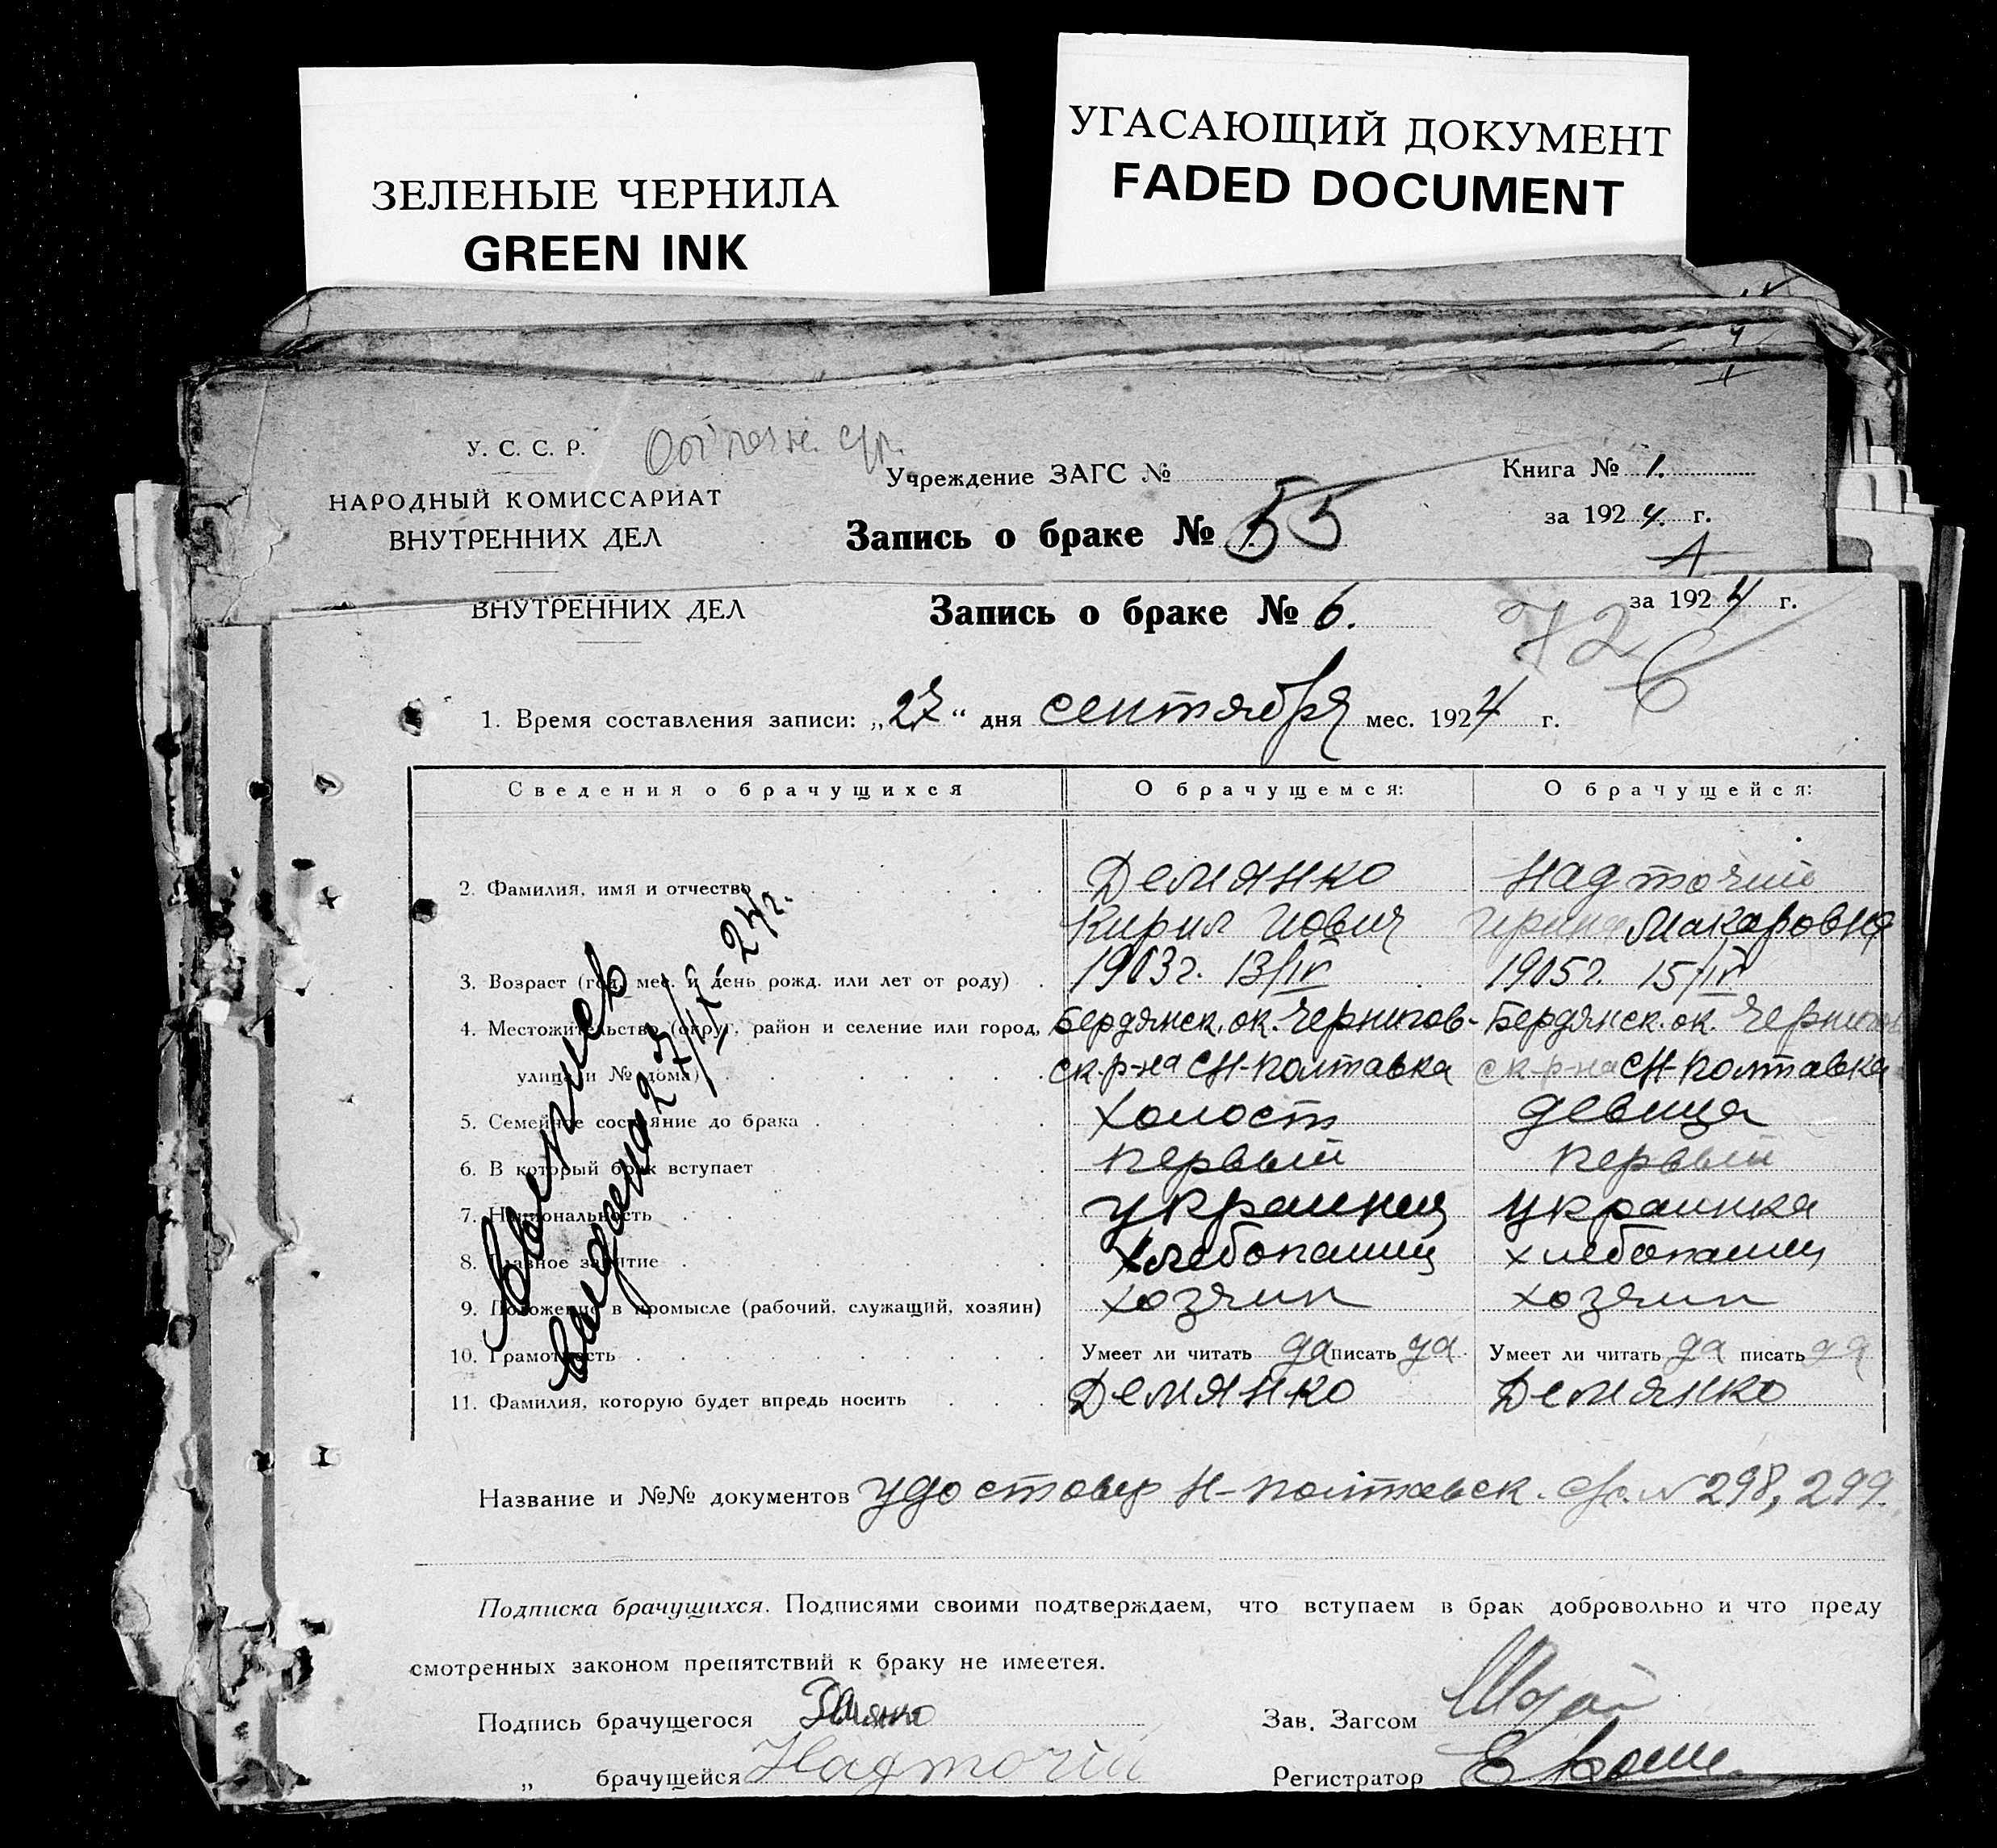 ЗЕЛЕНЫЕ ЧЕРНИЛА
GREEN INK
УГАСАЮЩИЙ ДОКУМЕНТ
FADED DOCUMENT
У. С. С. Р.
НАРОДНЫЙ КОМИССАРИАТ
ВНУТРЕННИХ ДЕЛ
Учреждение ЗАГС №
Книга № 1.
за 1924. г.
Запись о браке № 55
1
ВНУТРЕННИХ ДЕЛ
Запись о браке № 6.
за 1924 г.
72
6
1. Время составления записи: „27“ дня сентября мес. 1924 г.
Сведения о брачущихся О брачущемся: О брачущейся:
2. Фамилия, имя и отчество Демянко Надточий
Кирил Иович Ирина Макаровна
3. Возраст (год, мес. и день рожд. или лет от роду) 1903г. 13/IV 1905г. 15/IV
4. Местожительство (округ, район и селение или город, Бердянск. ок. Чернигов- Бердянск. ок. Чернигов
улица и № дома) ск. р-на с Н-Полтавка ск. р-на с Н-Полтавка
5. Семейное состояние до брака холост девица
6. В который брак вступает первый первый
7. Национальность украинец украинка
8. Главное занятие хлебопашец хлебопашец
9. Положение в промысле (рабочий, служащий, хозяин) хозяин хозяин
10. Грамотность Умеет ли читать да писать да Умеет ли читать да писать да
11. Фамилия, которую будет впредь носить Демянко Демянко
выдана 27/IX-24г.
Название и №№ документов удостовер Н-Полтавск. с/с. № 298, 299.
Подписка брачущихся. Подписями своими подтверждаем, что вступаем в брак добровольно и что преду
смотренных законом препятствий к браку не имеется.
Подпись брачущегося Зав. Загсом
„ брачущейся Надточій Регистратор